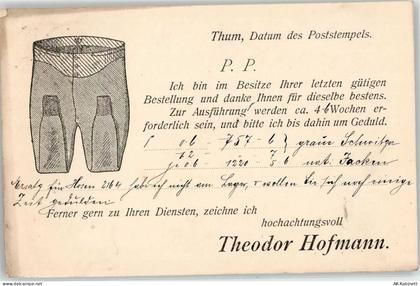 Thum, Datum des Poststempels.
P. P.
Ich bin im Besitze Ihrer letzten gütigen
Bestellung und danke Ihnen für dieselbe bestens.
Zur Ausführung werden ca. 4-6 Wochen er-
forderlich sein, und bitte ich bis dahin um Geduld.
06 - 757 - 6
72 7
06 - 1221 - 5 6
Jacken
für Hosen 2164 habe ich nicht am Lager, wollen Sie sich noch einige
Zeit gedulden
Ferner gern zu Ihren Diensten, zeichne ich
hochachtungsvoll
Theodor Hofmann.
AK-Kabinett